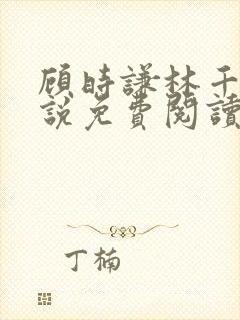 顾時謙林千
說免費閱讀
丁楠